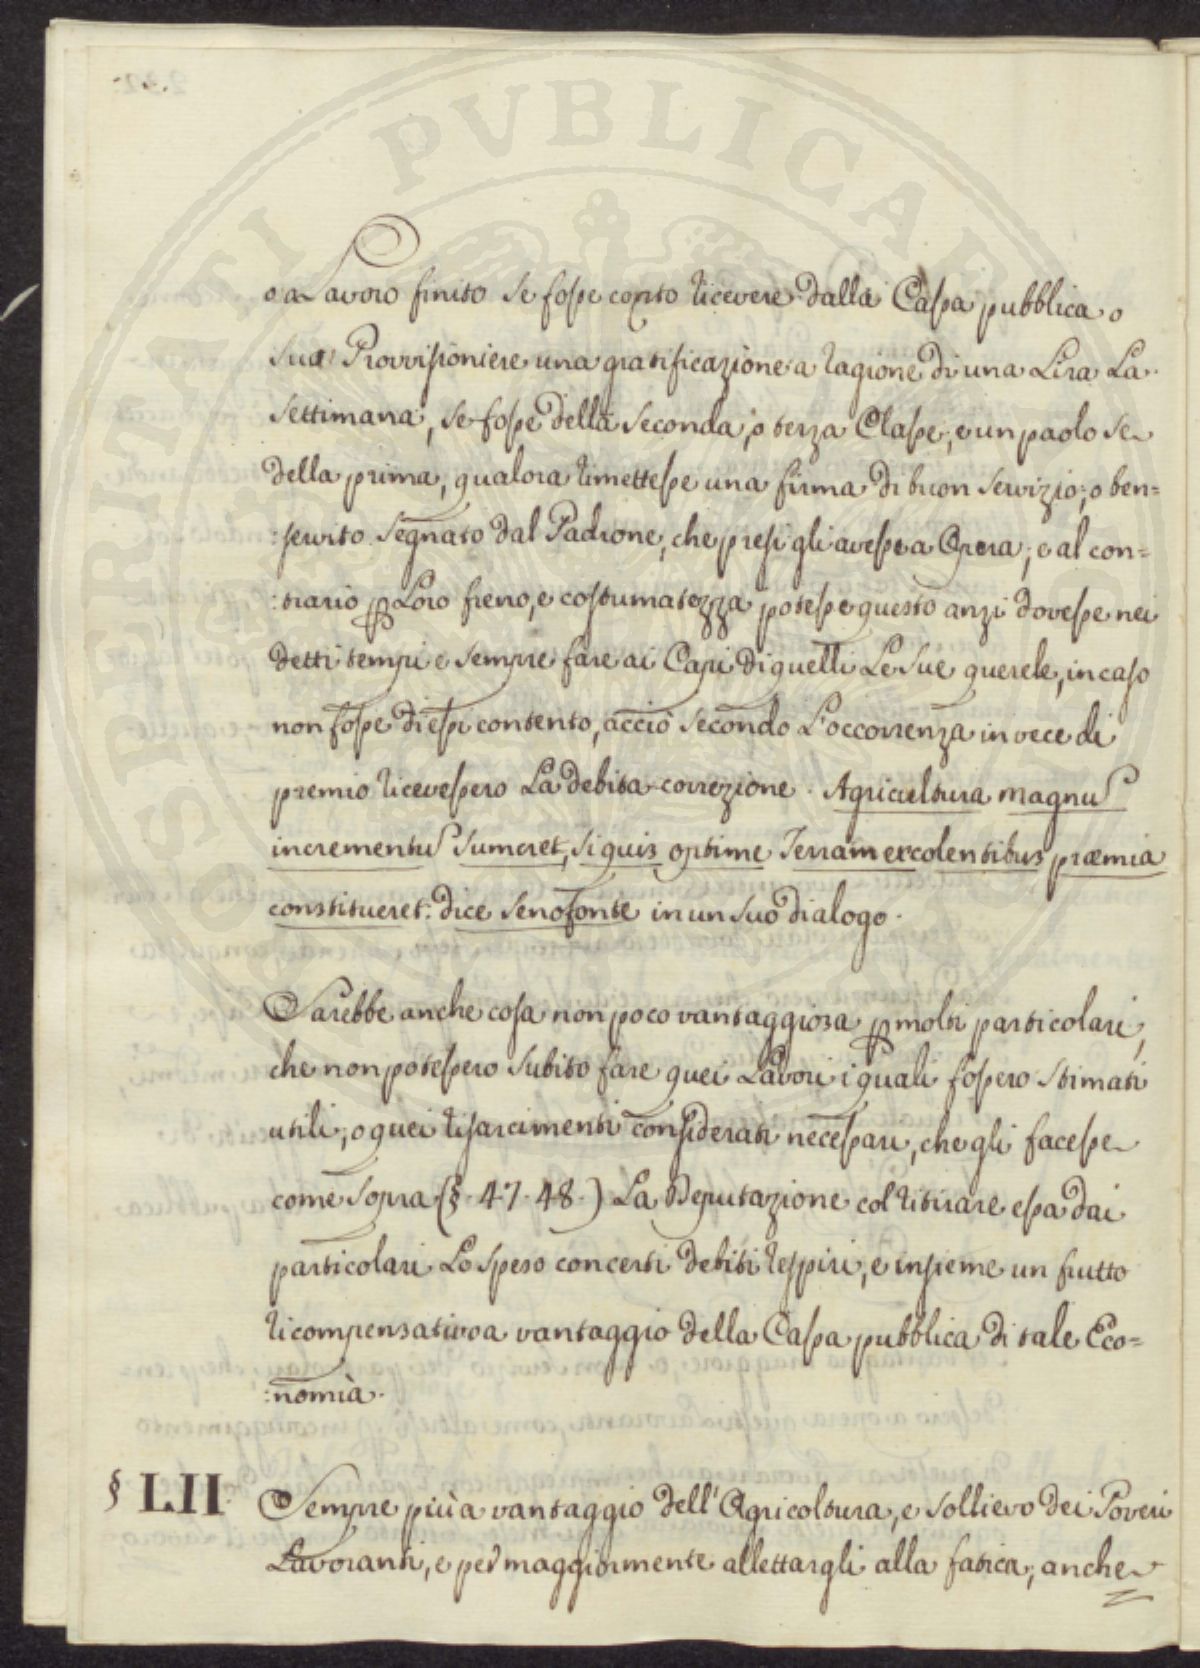 PROSPERITATI PUBLICAE
o a Lavoro finito se fosse corto ricevere dalla Cassa pubblica o
suo Provvisioniere una gratificazione a ragione di una Lira La
settimana, se fosse della seconda, o terza Classe, e un paolo se
della prima, qualora rimettesse una firma di buon servizio, o ben=
:servito segnato dal Padrone, che presi gli avesse a Opera, e al con=
:trario ꝑ Loro freno, e costumatezza potesse questo anzi dovesse nei
detti tempi e sempre fare ai Capi di quelli Le sue querele, in caso
non fosse di essi contento, acciò secondo L'occorrenza in vece di
premio ricevessero La debita correzione. Agricultura magnu͂
incrementu͂ sumeret, siquis optime Terram excolentibus præmia
constitueret: dice Senofonte in un suo dialogo.
Sarebbe anche cosa non poco vantaggiosa ꝑ molti particolari,
che non potessero subito fare quei Lavori i quali fossero stimati
utili, o quei risarcimenti considerati necessari, che gli facesse
come sopra (§. 47. 48.) La Deputazione col ritirare essa dai
particolari Lo speso con certi debiti respiri, e insieme un frutto
ricompensativo a vantaggio della Cassa pubblica di tale Eco=
:nomia.
§ LII. Sempre più a vantaggio dell'Agricoltura, e sollievo dei Poveri
Lavoranti, e per maggiormente allettargli alla fatica, anche